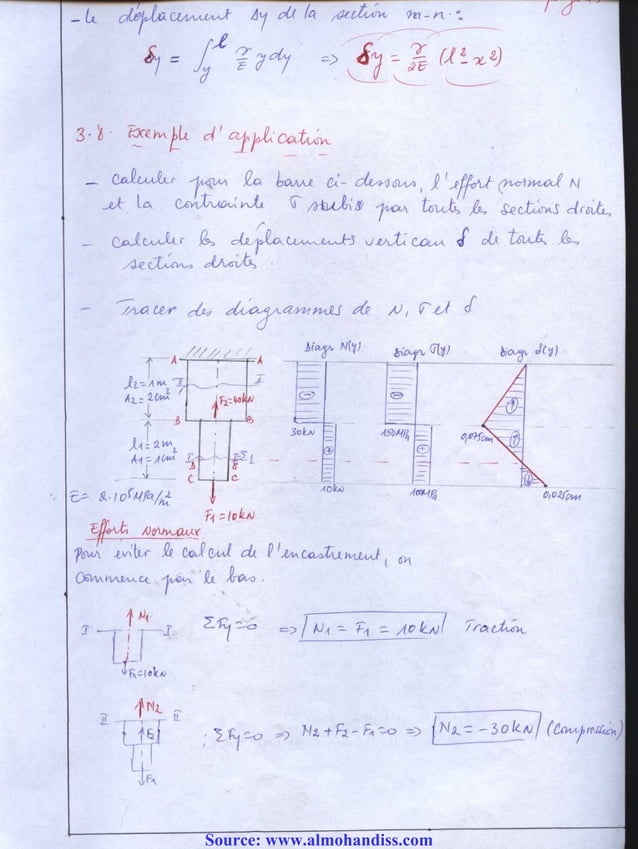 - Le déplacement δy de la section m-n :
δy = ∫ y l γ/E y dy => δy = γ/2E (l² - x²)
3.8. Exemple d'application
- calculer pour la barre ci-dessous, l'effort normal N
et la contrainte σ subis par toutes les sections droites
- calculer les déplacements verticaux δ de toutes les
sections droites.
- Tracer des diagrammes de N, σ et δ
Diagr N(y) Diagr σ(y) Diagr δ(y)
A A
l2 = 1m
A2 = 2cm²
II I
F2 = 40kN
B B
30kN 150MPa 0,075cm
l1 = 2m
A1 = 1cm²
C C
10kN 100MPa 0,025cm
E = 2.10⁵ MPa/m²
F1 = 10kN
Efforts normaux
Pour eviter le calcul de l'encastrement, on
commence par le bas.
I N1 I
F1 = 10kN
ΣFy=0 => N1 = F1 = 10kN Traction
II N2 II
F2
F1
: ΣFy=0 => N2 + F2 - F1 = 0 => N2 = -30kN (Compression)
Source: www.almohandiss.com